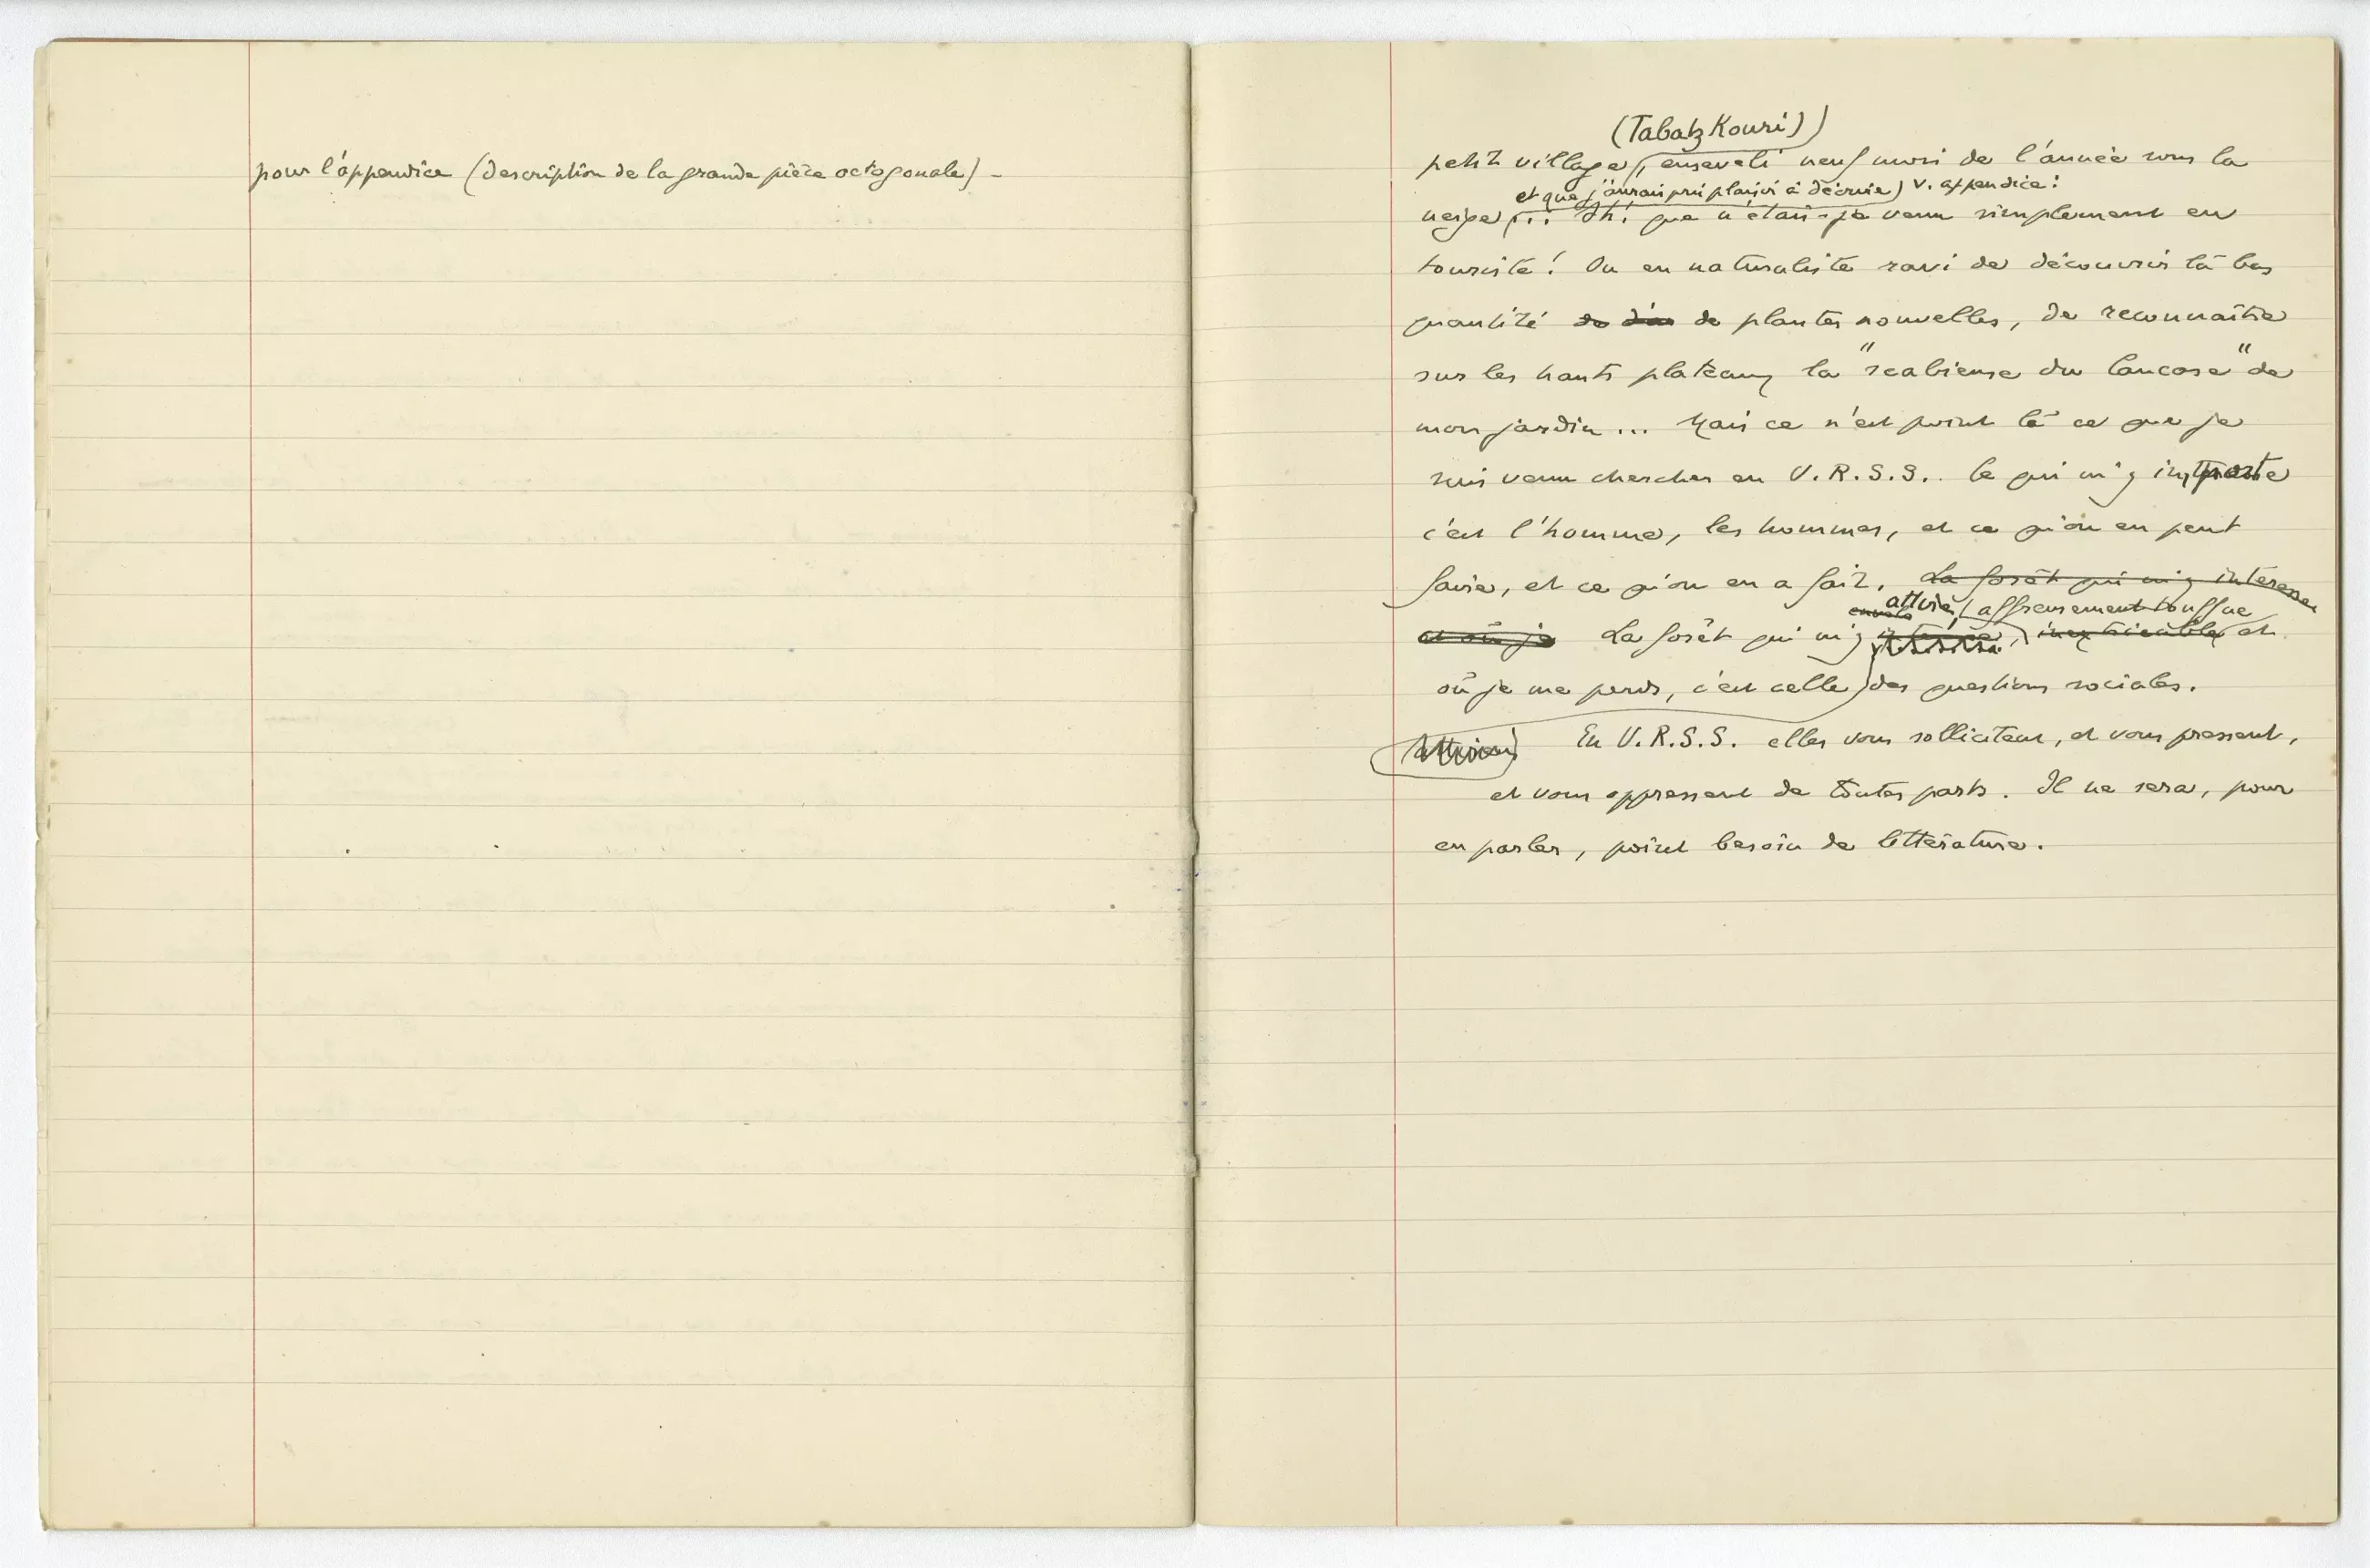 pour l'appendice (description de la grande pièce octogonale) –
(Tabatzkouri)
petit village, enseveli neuf mois de l'année sous la
et que j'aurais pris plaisir à décrire) v. appendice :
neige... Ah! que n'étais-je venu simplement en
touriste! Ou en naturaliste ravi de découvrir là-bas
quantité de de plantes nouvelles, de reconnaître
sur les hauts plateaux la "scabieuse du Caucase" de
mon jardin... Mais ce n'est point là ce que je
suis venu chercher en U.R.S.S.. Ce qui m'y importe
c'est l'homme, les hommes, et ce qu'on en peut
faire, et ce qu'on en a fait. La forêt qui m'y intéresse
attire, affreusement touffue
et où je La forêt qui m'y inextricable et
où je me perds, c'est celle des questions sociales.
En U.R.S.S. elles vous sollicitent, et vous pressent,
et vous oppressent de toutes parts. Il ne sera, pour
en parler, point besoin de littérature.